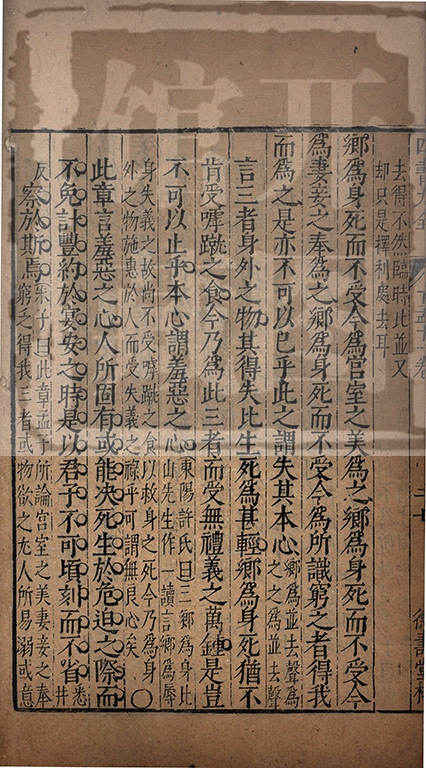 去得不然臨時比並又
却只是擇利處去耳
鄉爲身死而不受今爲宮室之美爲之鄉爲身死而不受今
爲妻妾之奉爲之鄉爲身死而不受今爲所識窮乏者得我
而爲之是亦不可以已乎此之謂失其本心鄉爲並去聲爲之之爲並去聲
言三者身外之物其得失比生死爲甚輕鄉爲身死猶不
肯受嘑蹴之食今乃爲此三者而受無禮義之萬鍾是豈
不可以止乎本心謂羞惡之心東陽許氏曰三鄉爲身比山先生作一讀言鄉爲辱
身失義之故尚不受嘑蹴之食以救身之死今乃爲身
外之物施惠於人而受失義之祿乎可謂無良心矣○
此章言羞惡之心人所固有或能決死生於危迫之際而
不免計豐約於宴安之時是以君子不可頃刻而不省悉井
反察於斯焉朱子曰此章孟子所論宮室之美妻妾之奉窮乏得我三者或物欲之尤人所易溺或意